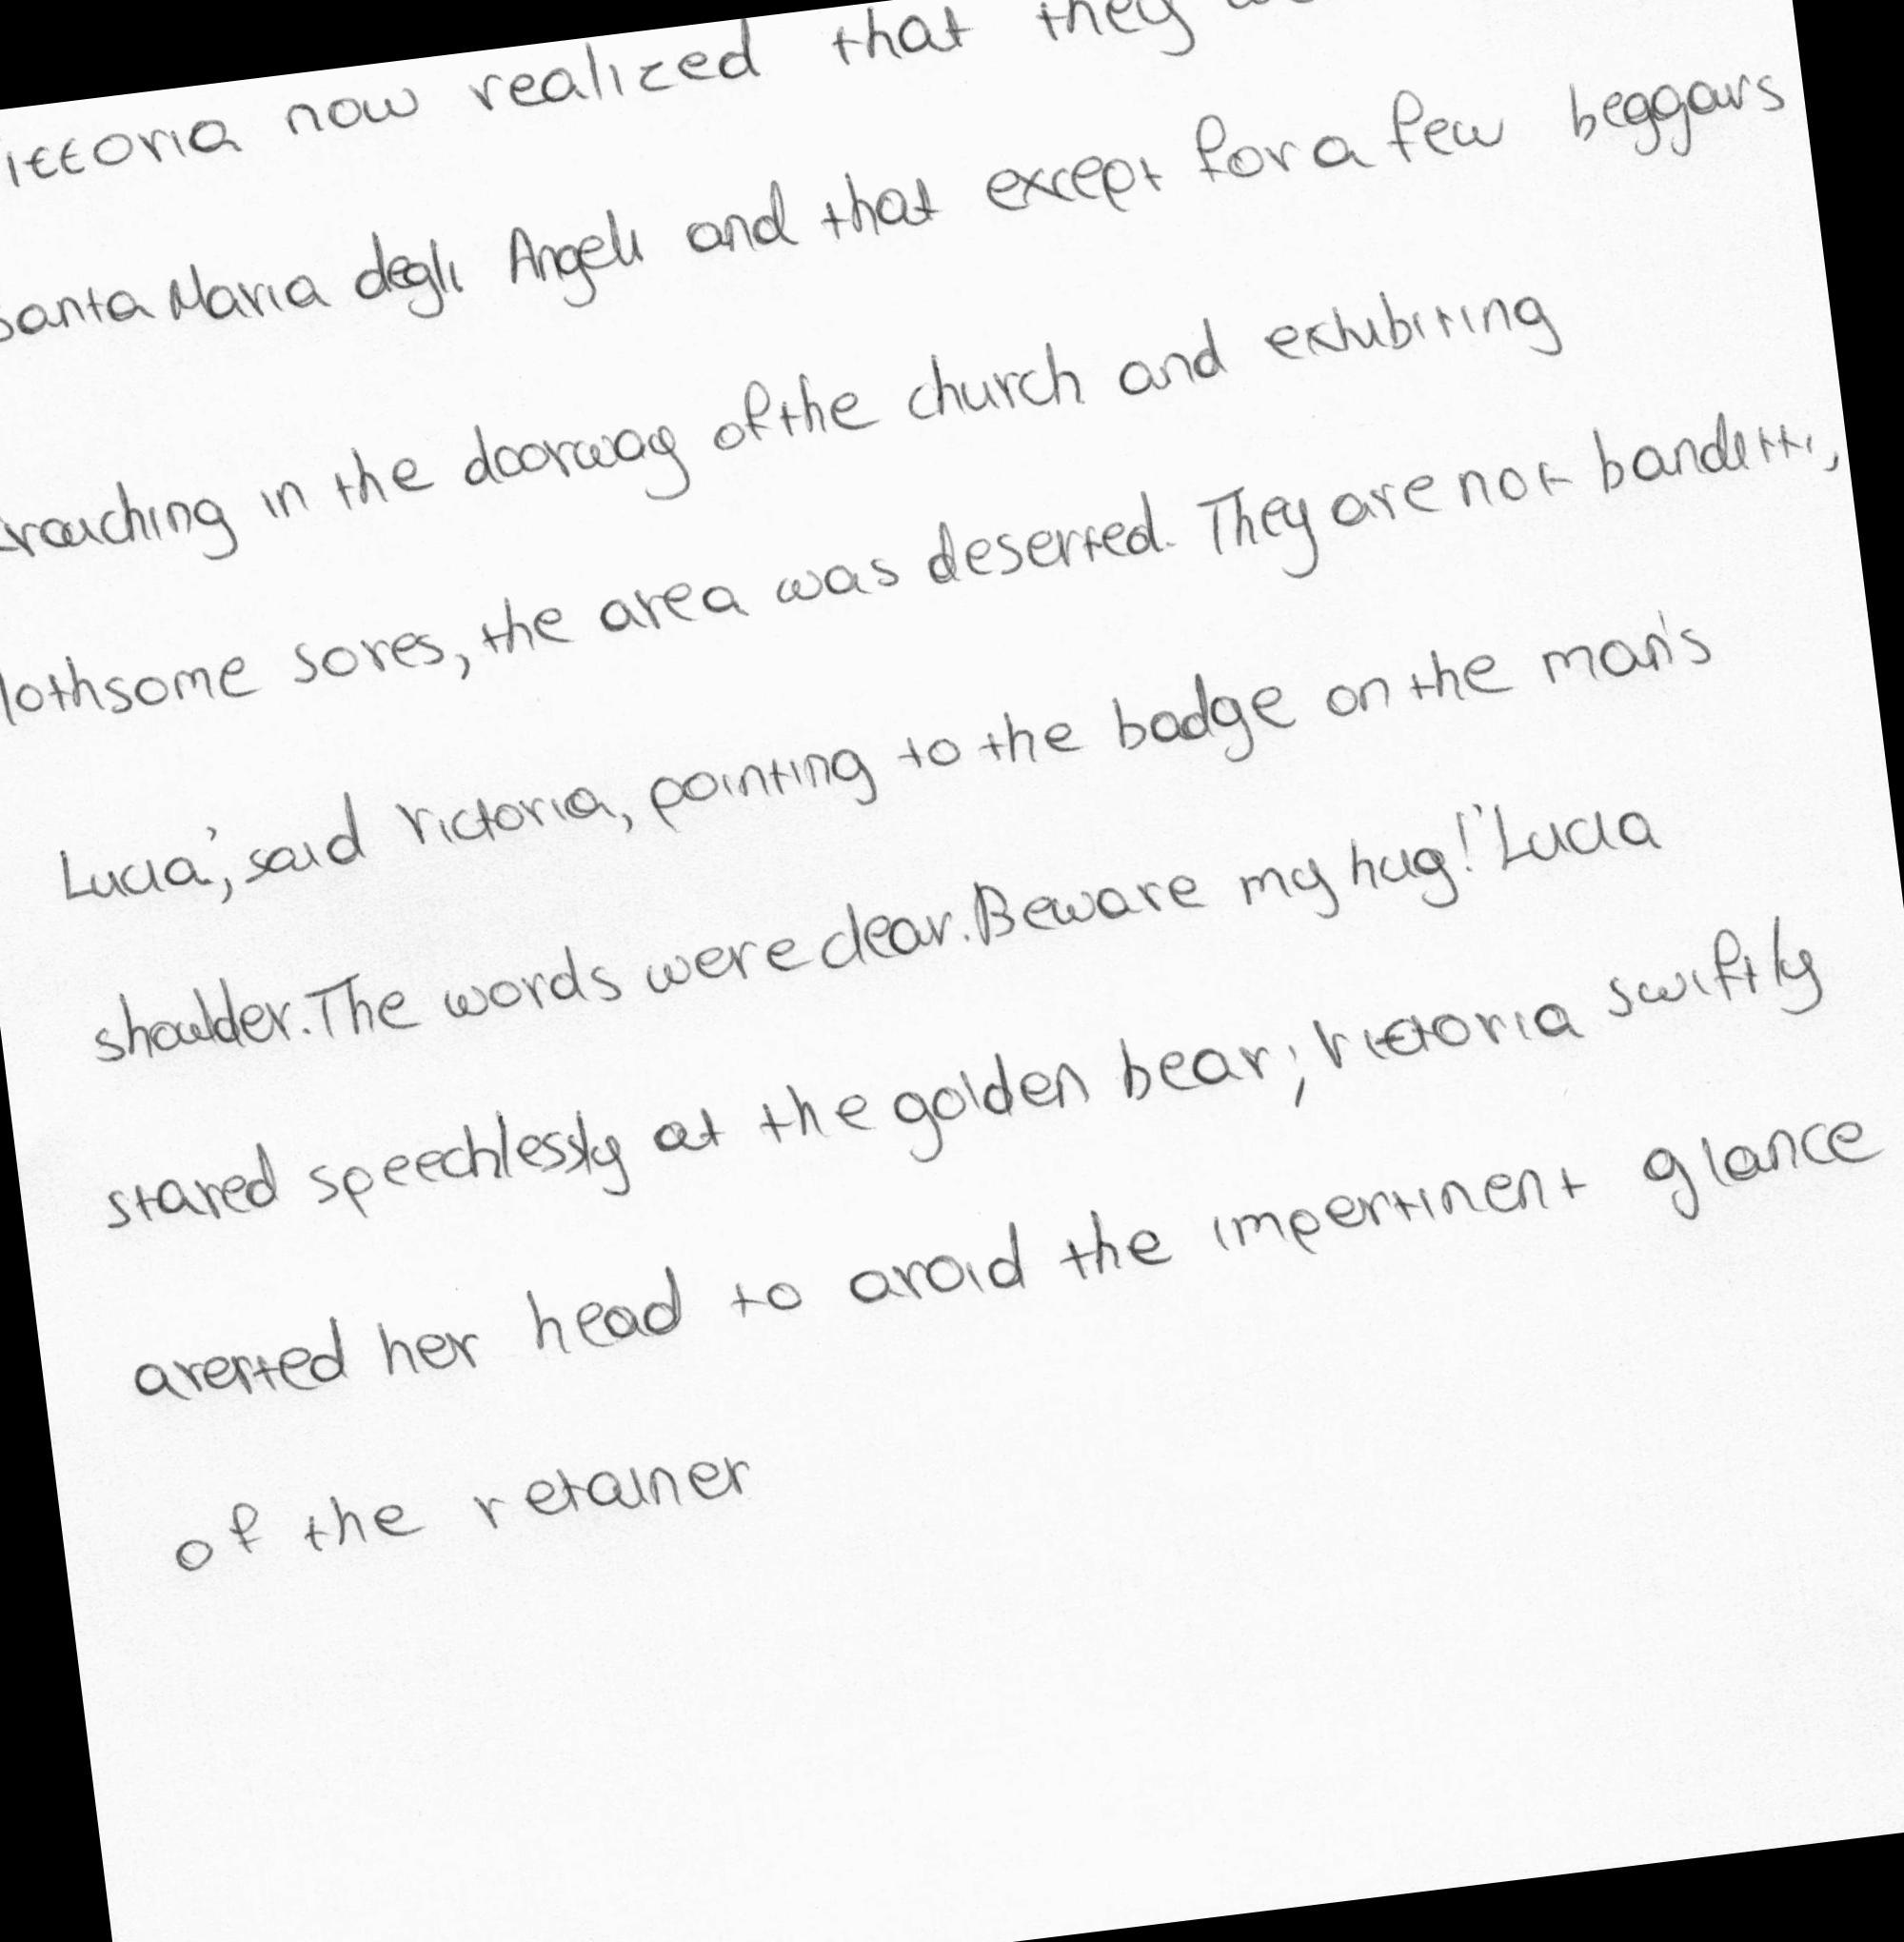 ittoria now realized that they
Santa Maria degli Angeli and that except for a few beggars
crouching in the doorway of the church and exhibiting
lothsome sores, the area was deserted. They are not banditti,
Lucia', said Victoria, pointing to the badge on the man's
shoulder. The words were clear. Beware my hug!' Lucia
stared speechlessly at the golden bear; Victoria swiftly
averted her head to avoid the impertinent glance
of the retainer